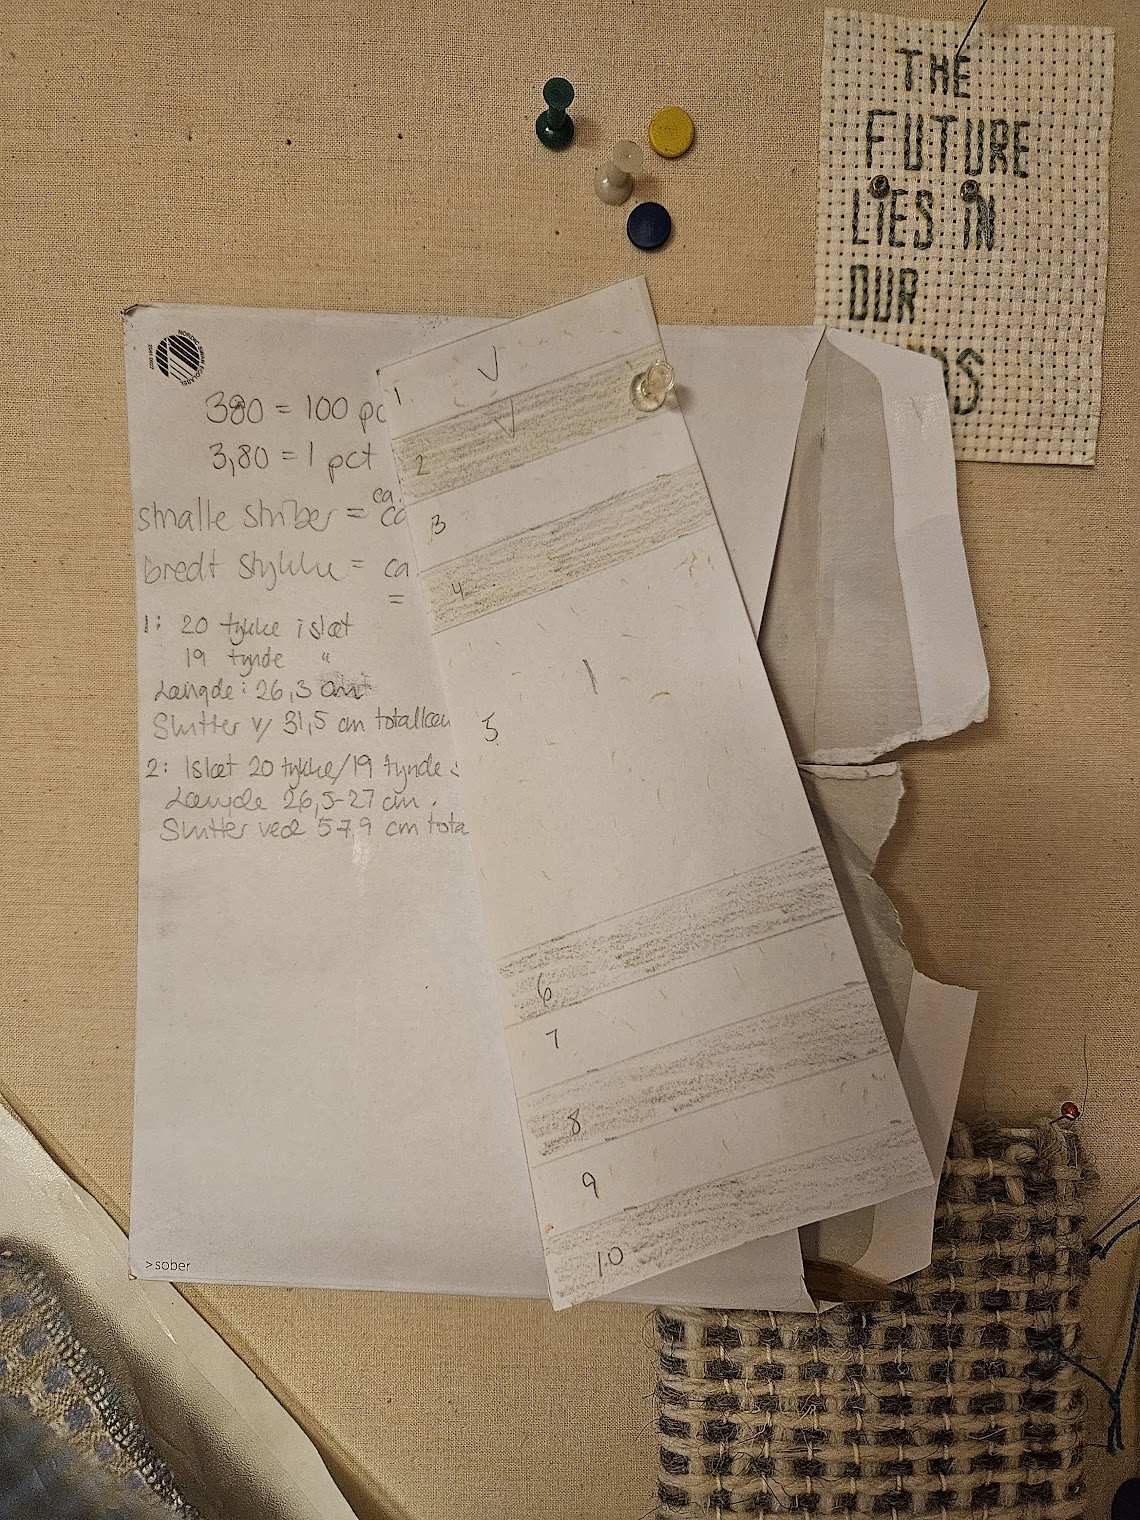 THE
FUTURE
LIES IN
OUR
NORDIC SWAN ECOLABEL
380 = 100 pc
3,80 = 1 pct
smalle striber = ca.
bredt stykke = ca
=
1: 20 tykke islæt
19 tynde "
Længde: 26,3 cm
Slutter v/ 31,5 cm totallæn
2: Islæt 20 tykke/19 tynde
Længde 26,5-27 cm.
Slutter ved 57,9 cm tota
>sober
1
2
3
4
5
6
7
8
9
10